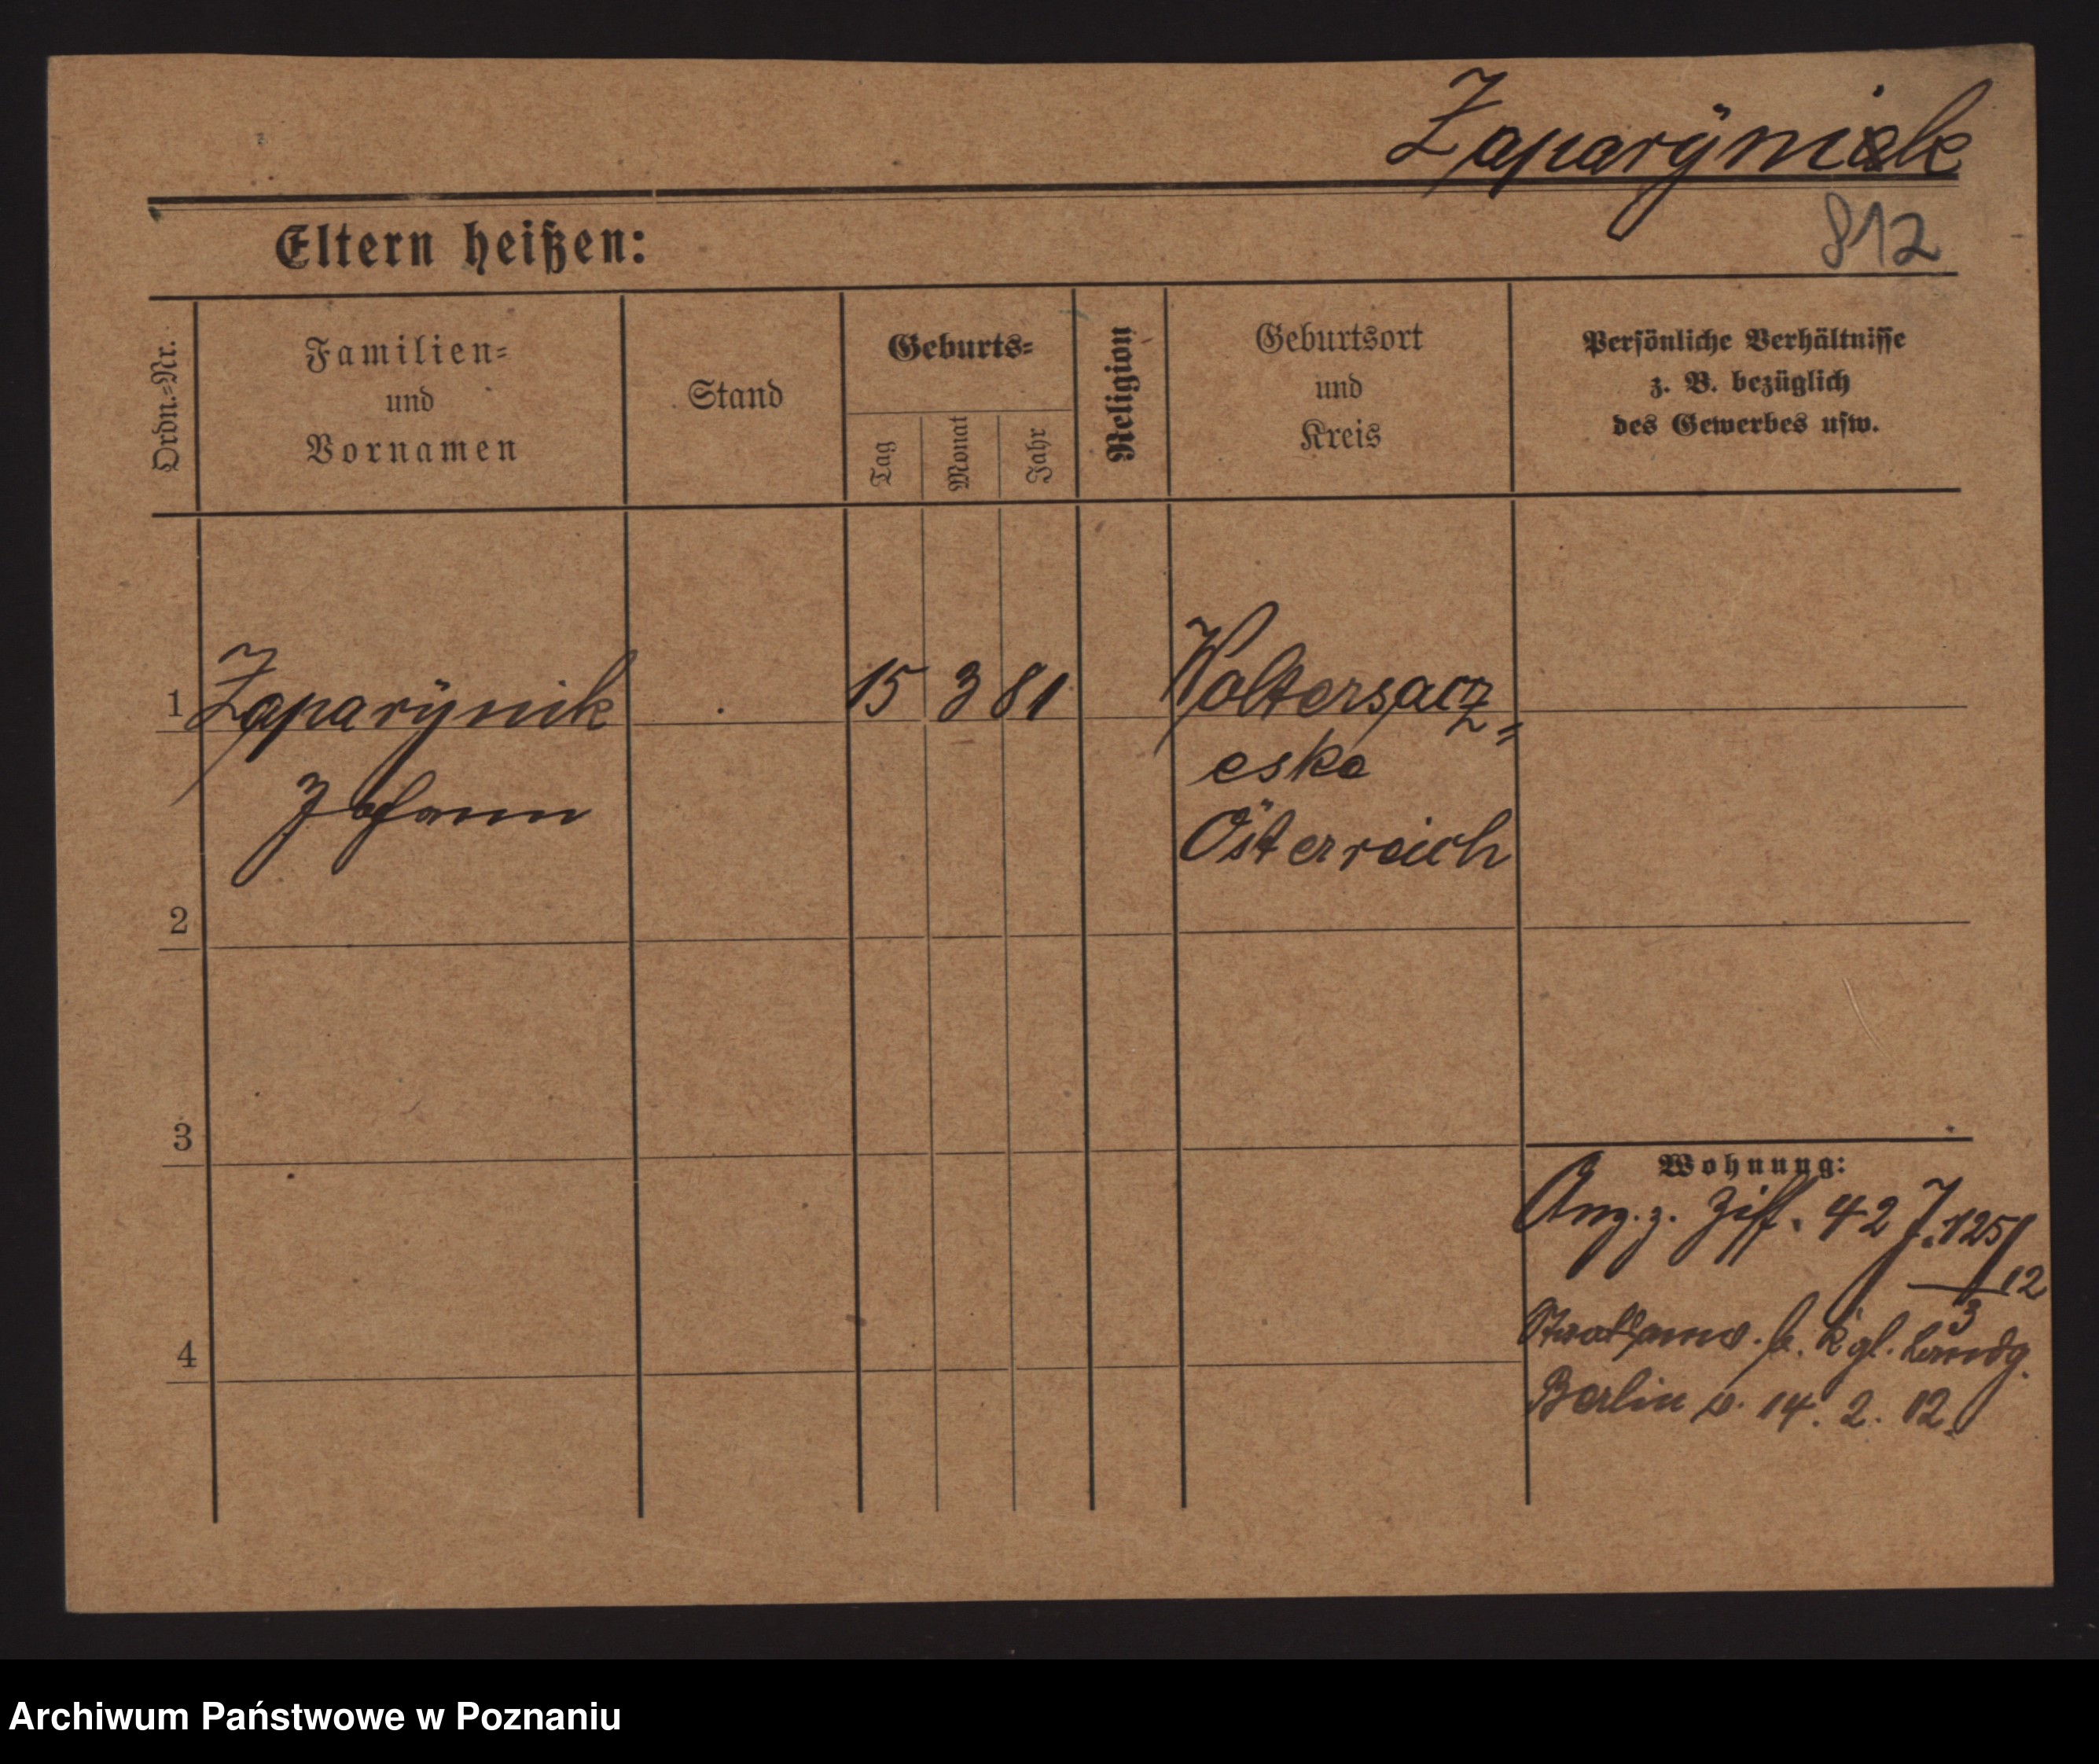 Zaparÿniek
812
Eltern heißen:
Ordn.=Nr.
Familien=
und
Vornamen
Stand
Geburts=
Tag
Monat
Jahr
Religion
Geburtsort
und
Kreis
Persönliche Verhältnisse
z. B. bezüglich
des Gewerbes usw.
1
Zaparÿnik
Johann
15 3 81
Woltersacz=
eska
Österreich
2
3
4
Wohnung:
Anz. z. Ziff. 42 J. 125/12
3
Staatsanw. b. Kgl. Landg.
Berlin v. 14. 2. 12.
Archiwum Państwowe w Poznaniu